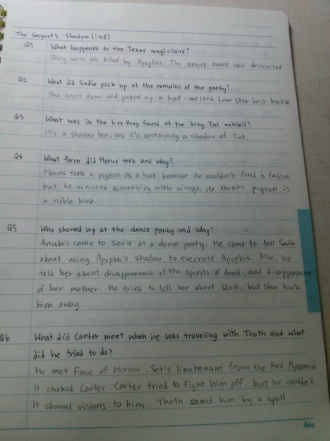 The Serpent's Shadow (1~3)
Q1 What happened to the Texas magicians?
They were all killed by Apophis. The entire nome was destroyed
Q2 What did Sadie pick up at the remains of the party?
She knelt down and picked up a half-melted Lone Star belt buckle.
Q3 What was in the box they found at the King Tut exhibit?
It's a shadow box, and it's containing a shadow of Tut.
Q4 What form did Horus took and why?
Horus took a pigeon as a hat because he couldn't find a falcon
but he wanted something with wings. He thinks pigeon is
a noble bird.
Q5 Who showed up at the dance party and why?
Anubis came to Sadie at a dance party. He came to tell Sadie
about using Apophis's shadow to execrate Apophis. Also, he
told her about disappearance of the spirits of dead, and disappearance
of her mother. He tried to tell her about Walt, but Shu took
him away
Q6 What did Carter meet when he was traveling with Thoth and what
did he tried to do?
He met Face of Horror, Set's lieutenant from the Red Pyramid
It choked Carter. Carter tried to fight him off, but he couldn't.
It showed visions to him. Thoth saved him by a spell